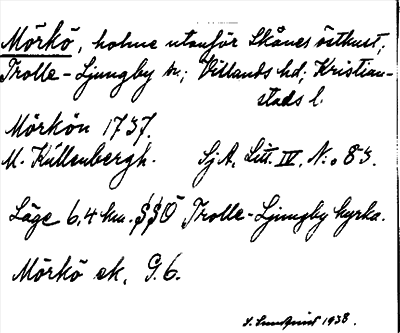 Mörkö, holme utanför Skånes östkust,
Trolle-Ljungby sn; Villands hd; Kristian-
stads l.
Mörkön 1737.
M. Kíllenbergh. SjA, Litt. IV, N:o 83.
Läge 6,4 km. SSÖ Trolle-Ljungby kyrka.
Mörkö ek, G.6.
S. Lundquist 1938.